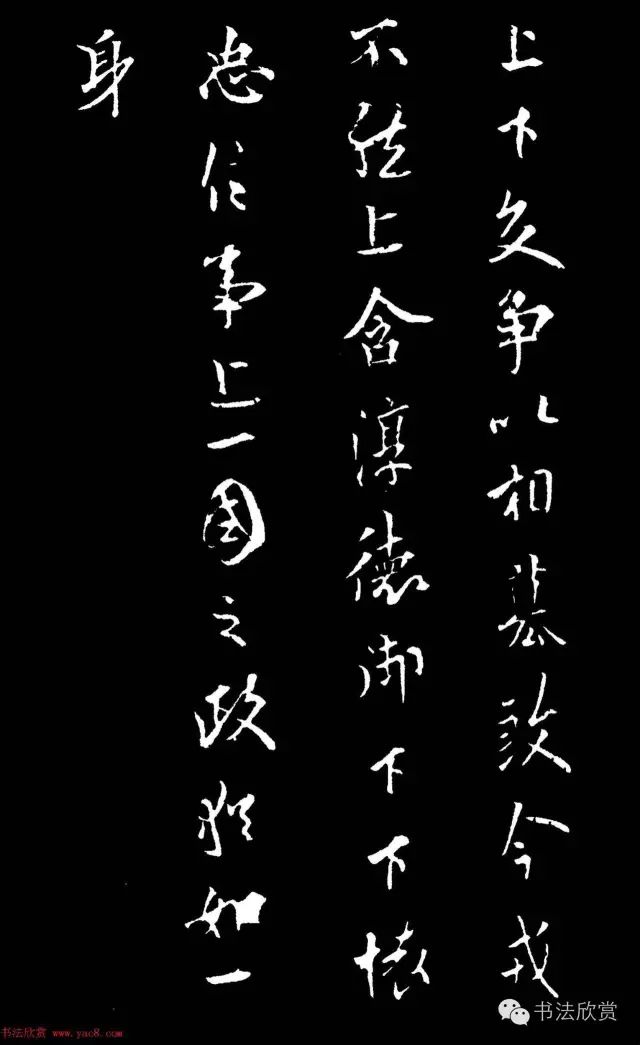 上下交争以相篡今戎
不然上含淳德御下下懷
忠信事上一國之政猶如一
身
书法欣赏
书法欣赏 www.yac8.com